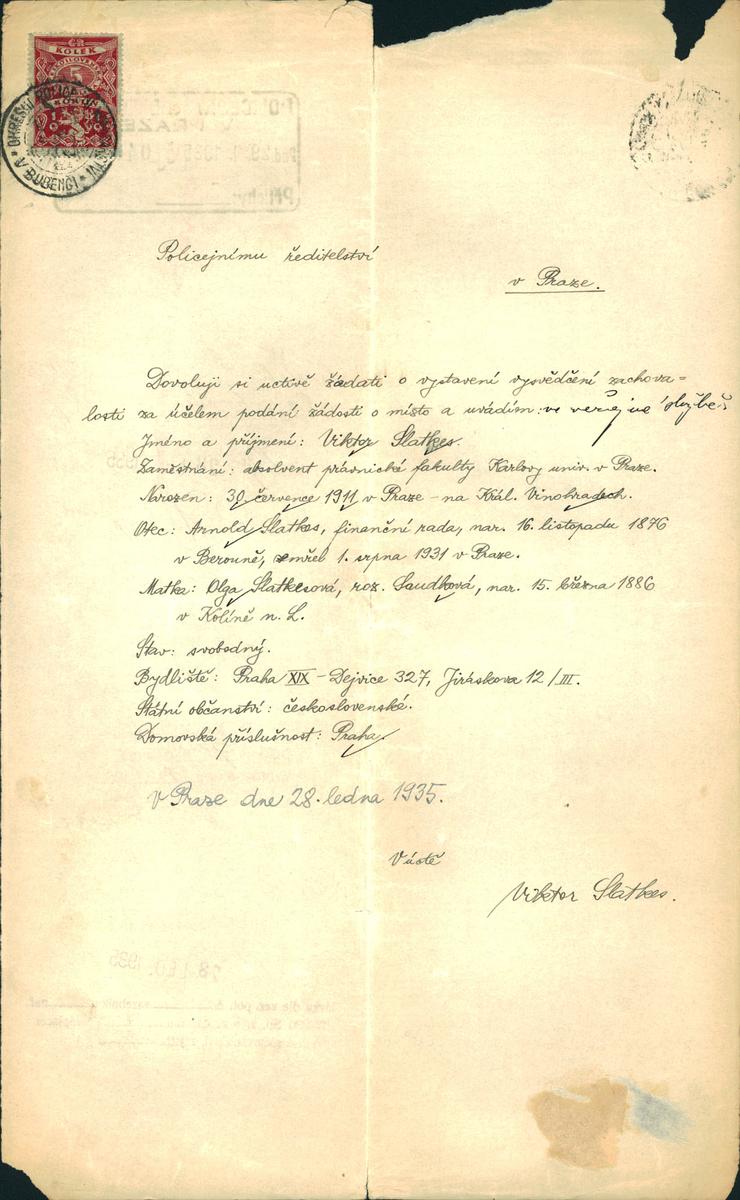 KOLEK
5
V BUBENČI
Policejnímu ředitelství
v Praze.
Dovoluji si uctivě žádati o vystavení vysvědčení zachova=
losti za účelem podání žádosti o místo a uvádím: ve veřejné službě
Jméno a příjmení: Viktor Slatkes.
Zaměstnání: absolvent právnické fakulty Karlovy univ. v Praze.
Narozen: 30 července 1911 v Praze – na Král. Vinohradech.
Otec: Arnold Slatkes, finanční rada, nar. 16. listopadu 1876
v Berouně, zemřel 1. srpna 1931 v Praze.
Matka: Olga Slatkesová, roz. Saudková, nar. 15. března 1886
v Kolíně n. L.
Stav: svobodný.
Bydliště: Praha XIX – Dejvice 327, Jiráskova 12/III.
Státní občanství: československé.
Domovská příslušnost: Praha.
V Praze dne 28. ledna 1935.
V úctě
Viktor Slatkes.
28. LED. 1935